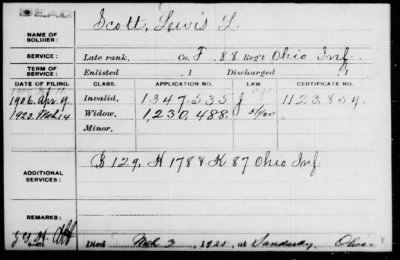 DEAD
NAME OF SOLDIER: Scott, Lewis L.
SERVICE: Late rank, Co. F, 88 Reg't Ohio Inf.
TERM OF SERVICE: Enlisted , 1 Discharged , 1
DATE OF FILING. CLASS. APPLICATION NO. LAW. CERTIFICATE NO.
1906 Apr. 9. Invalid, 1347.535 1123.859.
Widow, 1,230,488.
Minor,
ADDITIONAL SERVICES: B 129, H 178 & K 87 Ohio Inf.
REMARKS:
Died Mch 3, 1925, at Sandusky, Ohio.